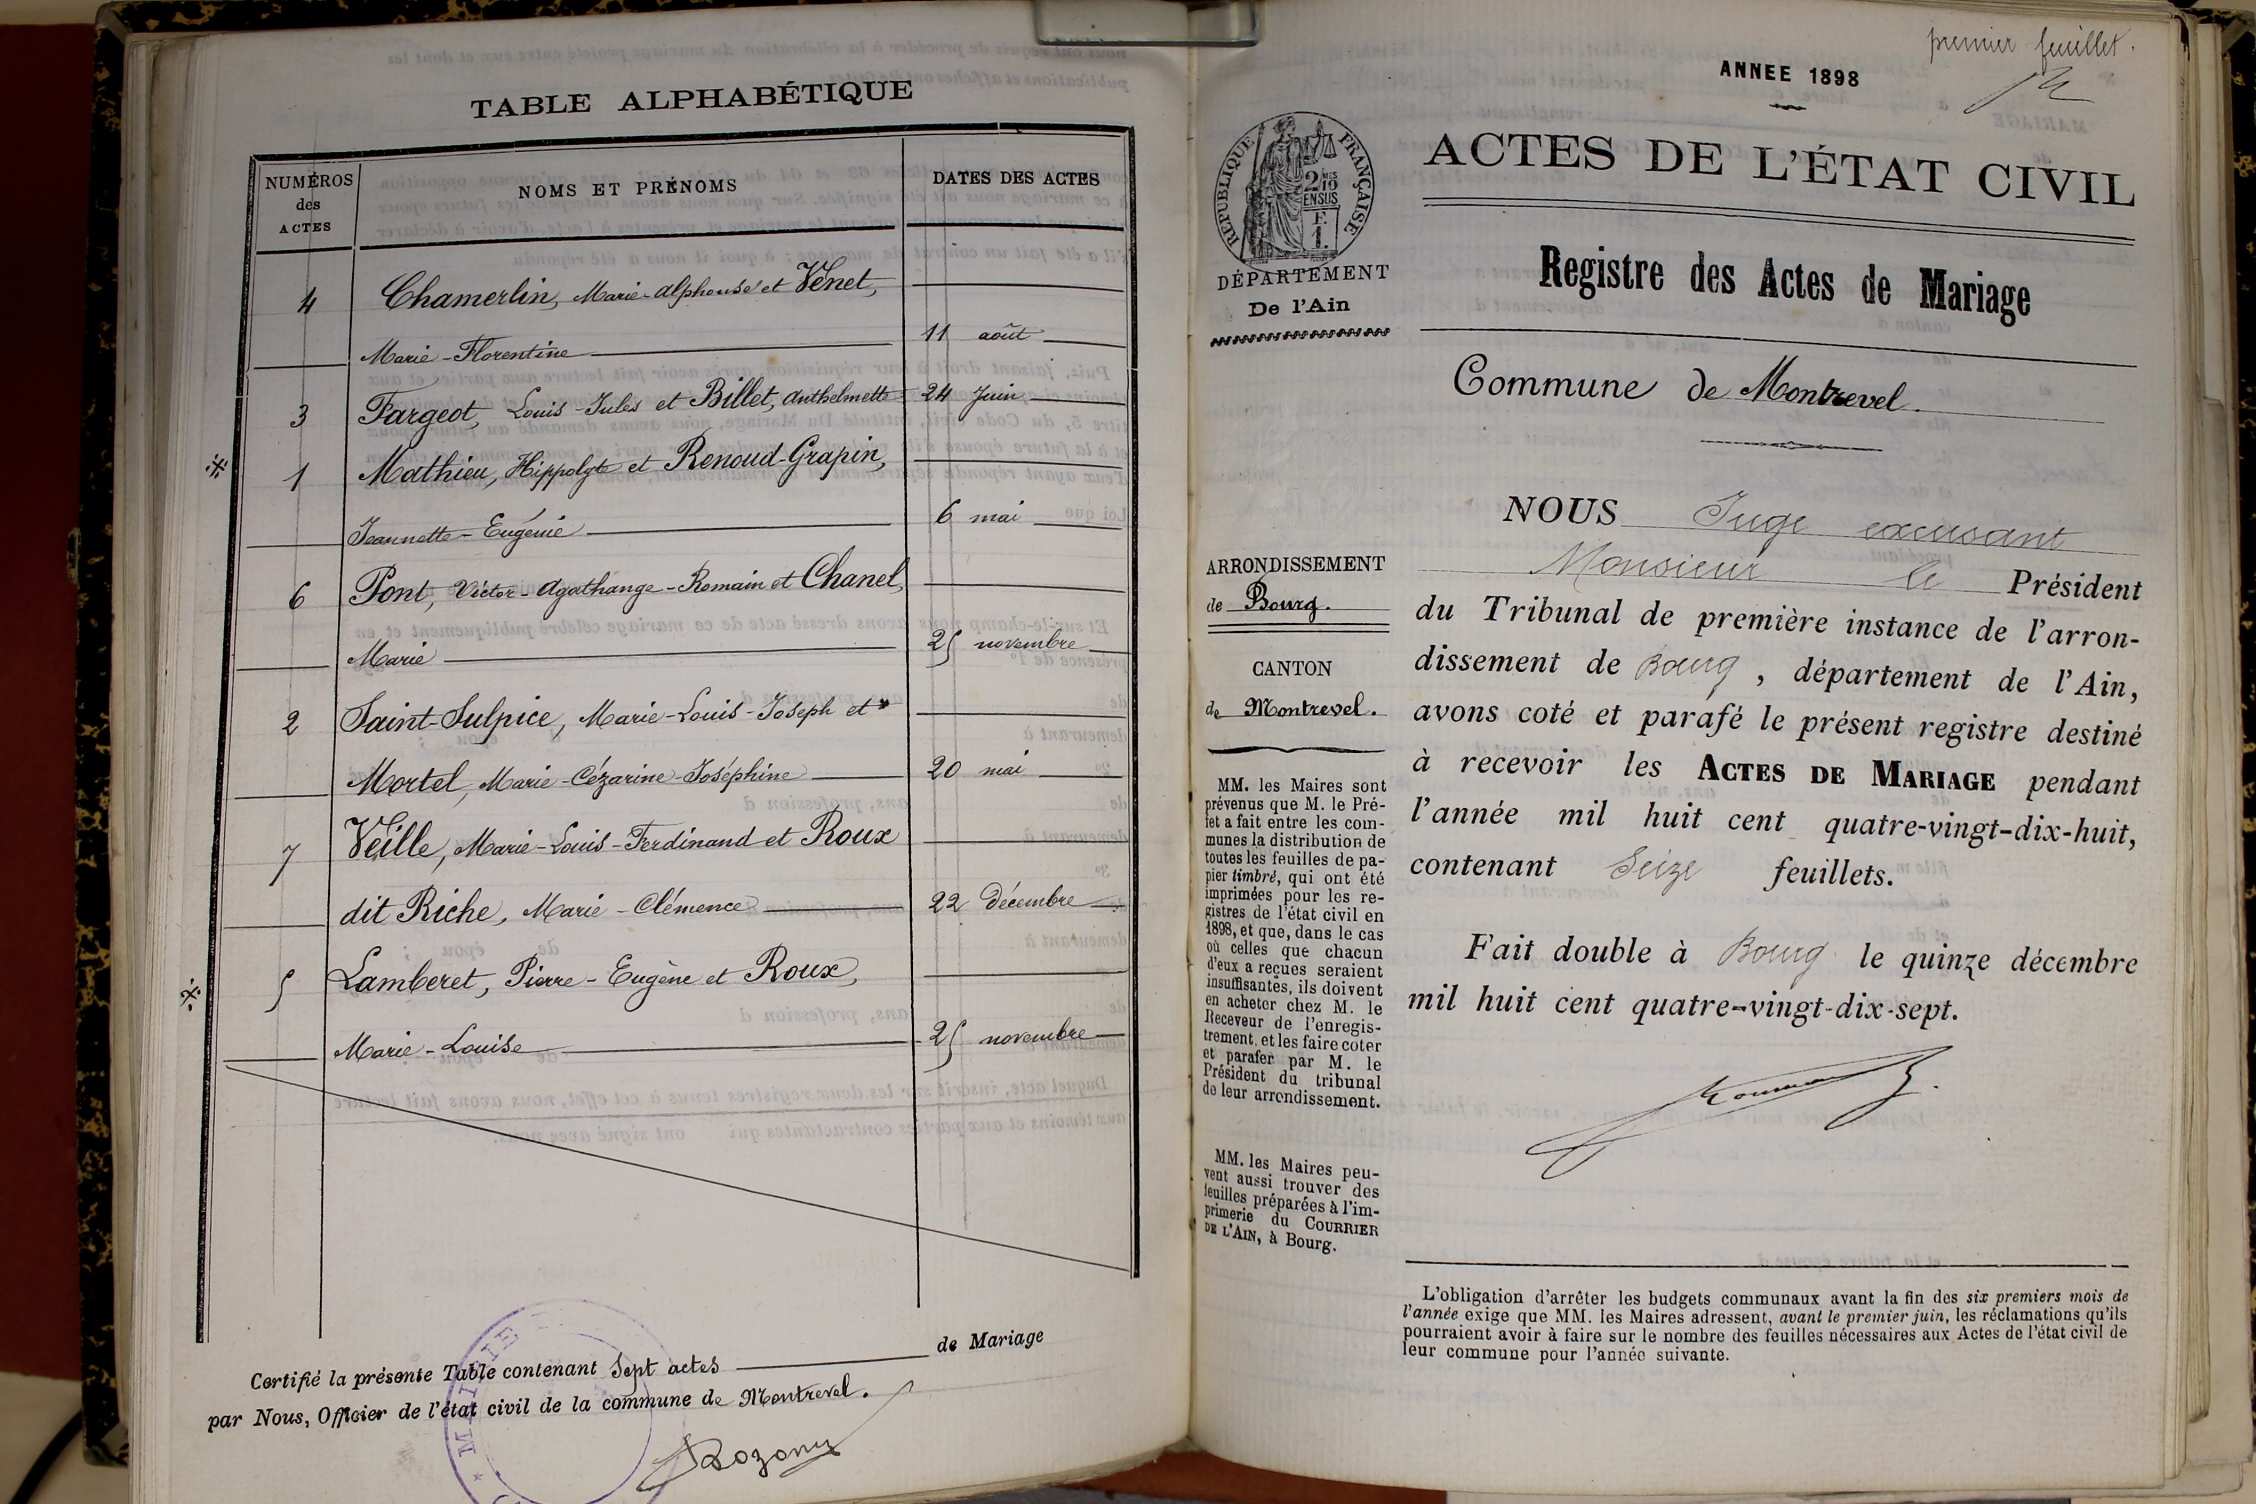 TABLE ALPHABÉTIQUE
NUMÉROS des ACTES
NOMS ET PRÉNOMS
DATES DES ACTES
4 Chamerlin, Marie-Alphonse et Vénet,
Marie-Florentine 11 août
3 Fargeot, Louis-Jules et Billet, Anthelmette 24 Juin
1 Mathieu, Hippolyte et Renoud-Grapin,
Jeannette-Eugénie 6 mai
6 Pont, Victor-Agathange-Romain et Chanel,
Marie 25 novembre
2 Saint-Sulpice, Marie-Louis-Joseph et
Mortel, Marie-Cézarine-Joséphine 20 mai
7 Veille, Marie-Louis-Ferdinand et Roux
dit Riche, Marie-Clémence 22 Décembre
5 Lamberet, Pierre-Eugène et Roux,
Marie-Louise 25 novembre
Certifié la présente Table contenant Sept actes de Mariage
par Nous, Officier de l'état civil de la commune de Montrevel.
MAIRIE
premier feuillet.
ANNEE 1898
ACTES DE L'ÉTAT CIVIL
RÉPUBLIQUE FRANÇAISE
2 10
EN SUS
F.
1.
DÉPARTEMENT
De l'Ain
Registre des Actes de Mariage
Commune de Montrevel.
ARRONDISSEMENT
de Bourg.
CANTON
de Montrevel.
MM. les Maires sont
prévenus que M. le Pré-
fet a fait entre les com-
munes la distribution de
toutes les feuilles de pa-
pier timbré, qui ont été
imprimées pour les re-
gistres de l'état civil en
1898, et que, dans le cas
où celles que chacun
d'eux a reçues seraient
insuffisantes, ils doivent
en acheter chez M. le
Receveur de l'enregis-
trement, et les faire coter
et parafer par M. le
Président du tribunal
de leur arrondissement.
MM. les Maires peu-
vent aussi trouver des
feuilles préparées à l'im-
primerie du COURRIER
DE L'AIN, à Bourg.
NOUS Juge excusant
Monsieur le Président
du Tribunal de première instance de l'arron-
dissement de Bourg, département de l'Ain,
avons coté et parafé le présent registre destiné
à recevoir les ACTES DE MARIAGE pendant
l'année mil huit cent quatre-vingt-dix-huit,
contenant Seize feuillets.
Fait double à Bourg le quinze décembre
mil huit cent quatre-vingt-dix-sept.
L'obligation d'arrêter les budgets communaux avant la fin des six premiers mois de
l'année exige que MM. les Maires adressent, avant le premier juin, les réclamations qu'ils
pourraient avoir à faire sur le nombre des feuilles nécessaires aux Actes de l'état civil de
leur commune pour l'année suivante.